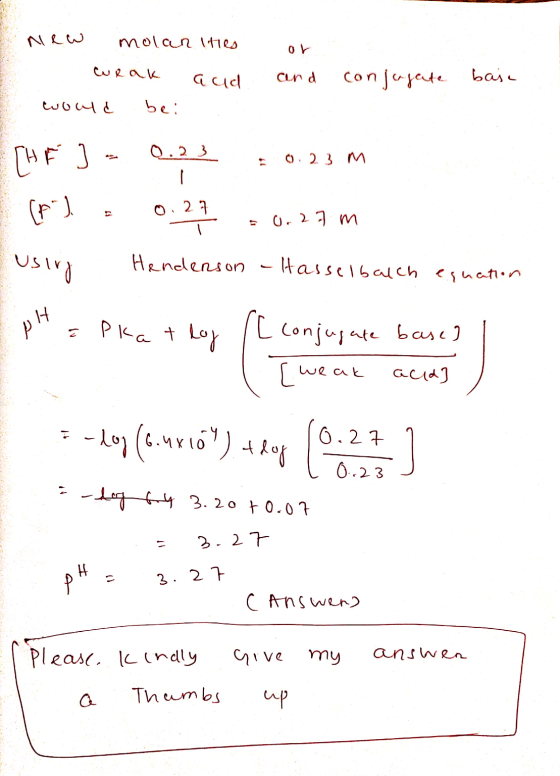 New molarities of
weak acid and conjugate base
would be:
[HF] = 0.23 / 1 = 0.23 M
[F⁻] = 0.27 / 1 = 0.27 M
Using Henderson - Hasselbalch equation
pH = PKa + log ([conjugate base] / [weak acid])
= -log (6.4x10⁻⁴) + log [0.27 / 0.23]
= 3.20 + 0.07
= 3.27
pH = 3.27
(Answer)
Please. Kindly Give my answer
a Thumbs up